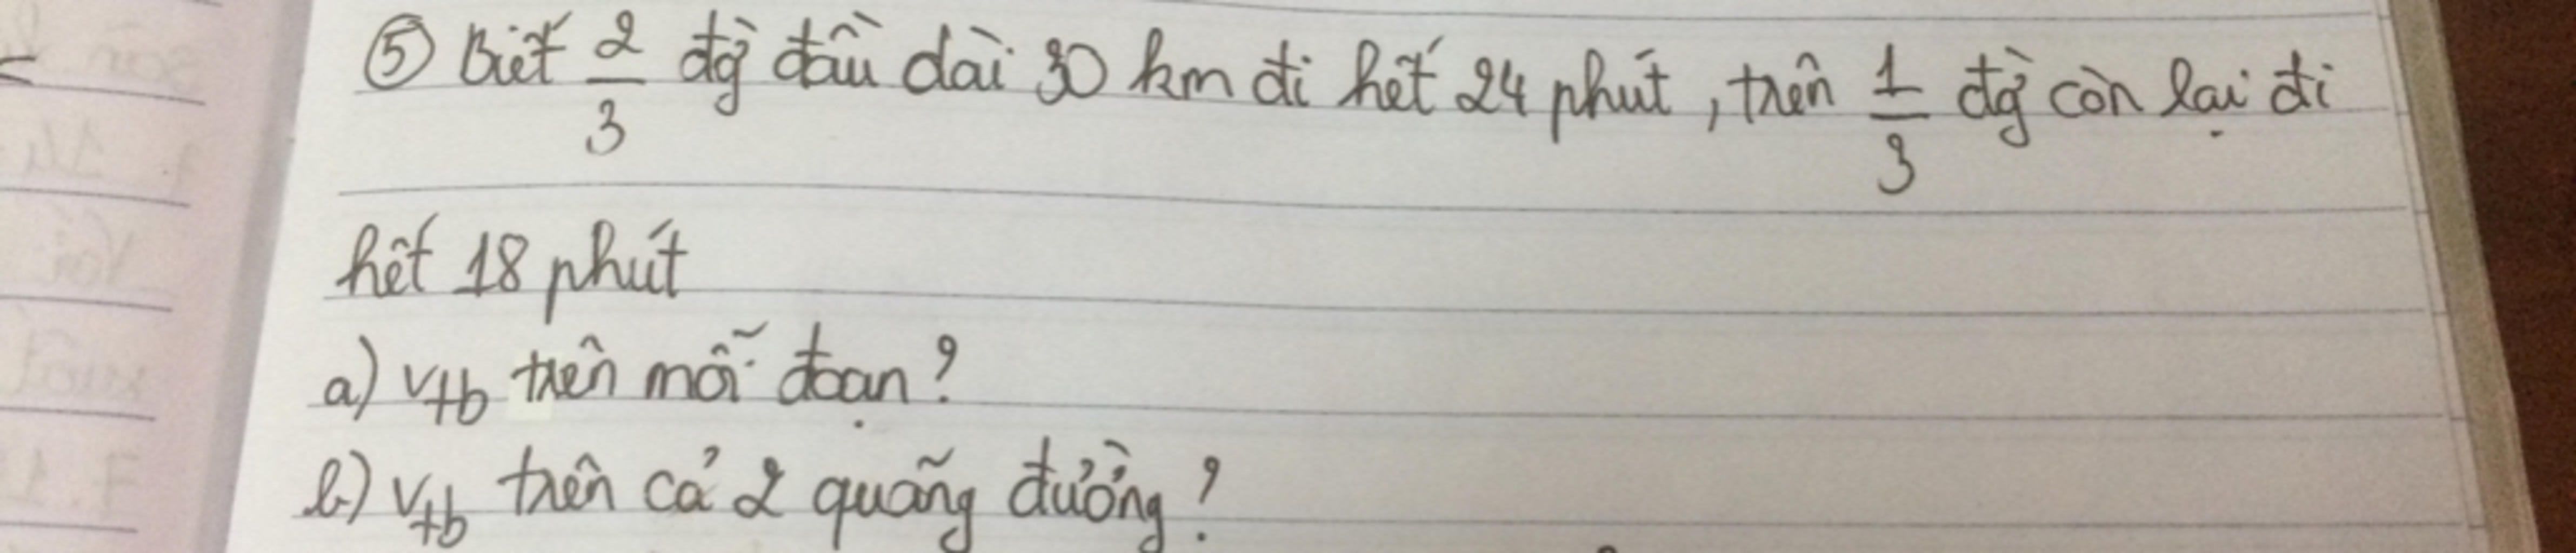 ⑤ Biết 2/3 đg̀ đầu dài 30 km đi hết 24 phút, trên 1/3 đg̀ còn lại đi
hết 18 phút
a) vtb trên mỗi đoạn?
b) vtb trên cả 2 quãng đường?